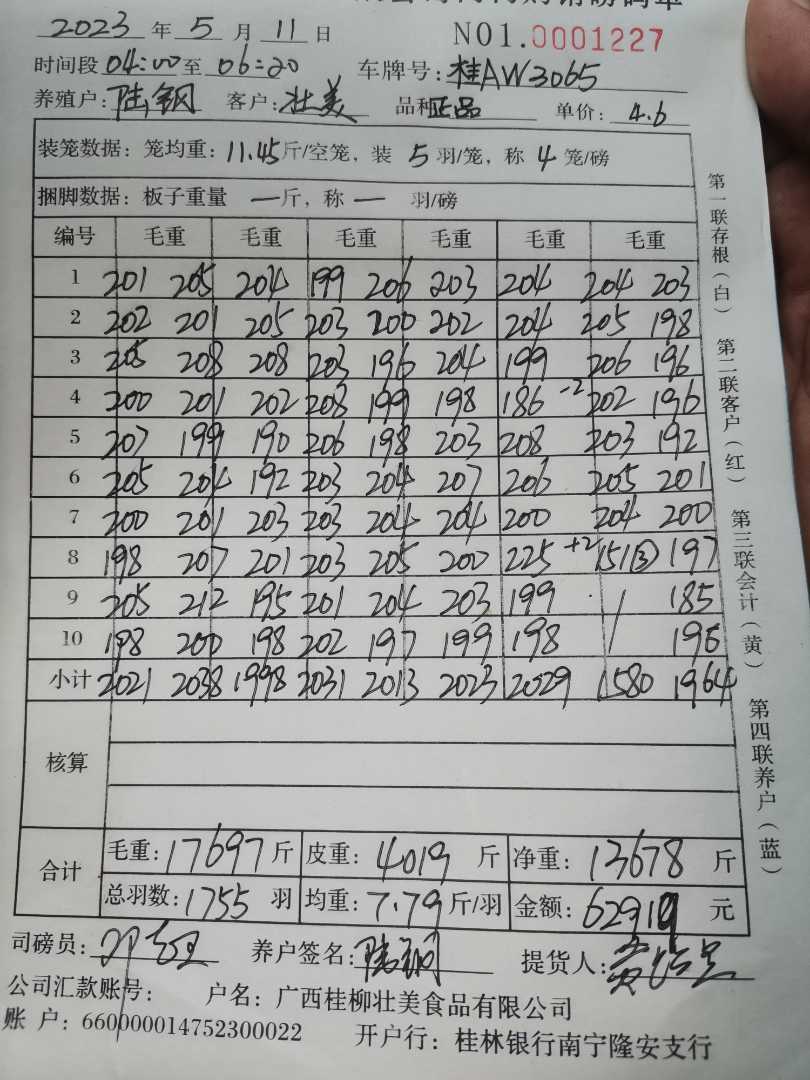 2023 年 5 月 11 日 NO1.0001227
时间段 04:00 至 06:20 车牌号: 桂AW3065
养殖户: 陆钢 客户: 壮美 品种 正品 单价: 4.6
装笼数据: 笼均重: 11.45 斤/空笼, 装 5 羽/笼, 称 4 笼/磅
捆脚数据: 板子重量 一 斤, 称 一 羽/磅
编号 毛重 毛重 毛重 毛重 毛重 毛重
1 201 205 204 199 206 203 204 204 203
2 202 201 205 203 200 202 204 205 198
3 205 208 208 203 196 204 199 206 196
4 200 201 202 208 199 198 186 -2 202 196
5 207 199 190 206 198 203 208 203 192
6 205 204 192 203 204 207 206 205 201
7 200 201 203 203 204 204 200 204 200
8 198 207 201 203 205 200 225 +2 151③ 197
9 205 212 195 201 204 203 199 / 185
10 198 200 198 202 197 199 198 / 196
小计 2021 2038 1998 2031 2013 2023 2029 1580 1964
核算
合计 毛重: 17697 斤 皮重: 4019 斤 净重: 13678 斤
总羽数: 1755 羽 均重: 7.79 斤/羽 金额: 62919 元
司磅员: 养户签名: 陆钢 提货人:
公司汇款账号: 户名: 广西桂柳壮美食品有限公司
账 户: 660000014752300022 开户行: 桂林银行南宁隆安支行
第一联存根(白) 第二联客户(红) 第三联会计(黄) 第四联养户(蓝)